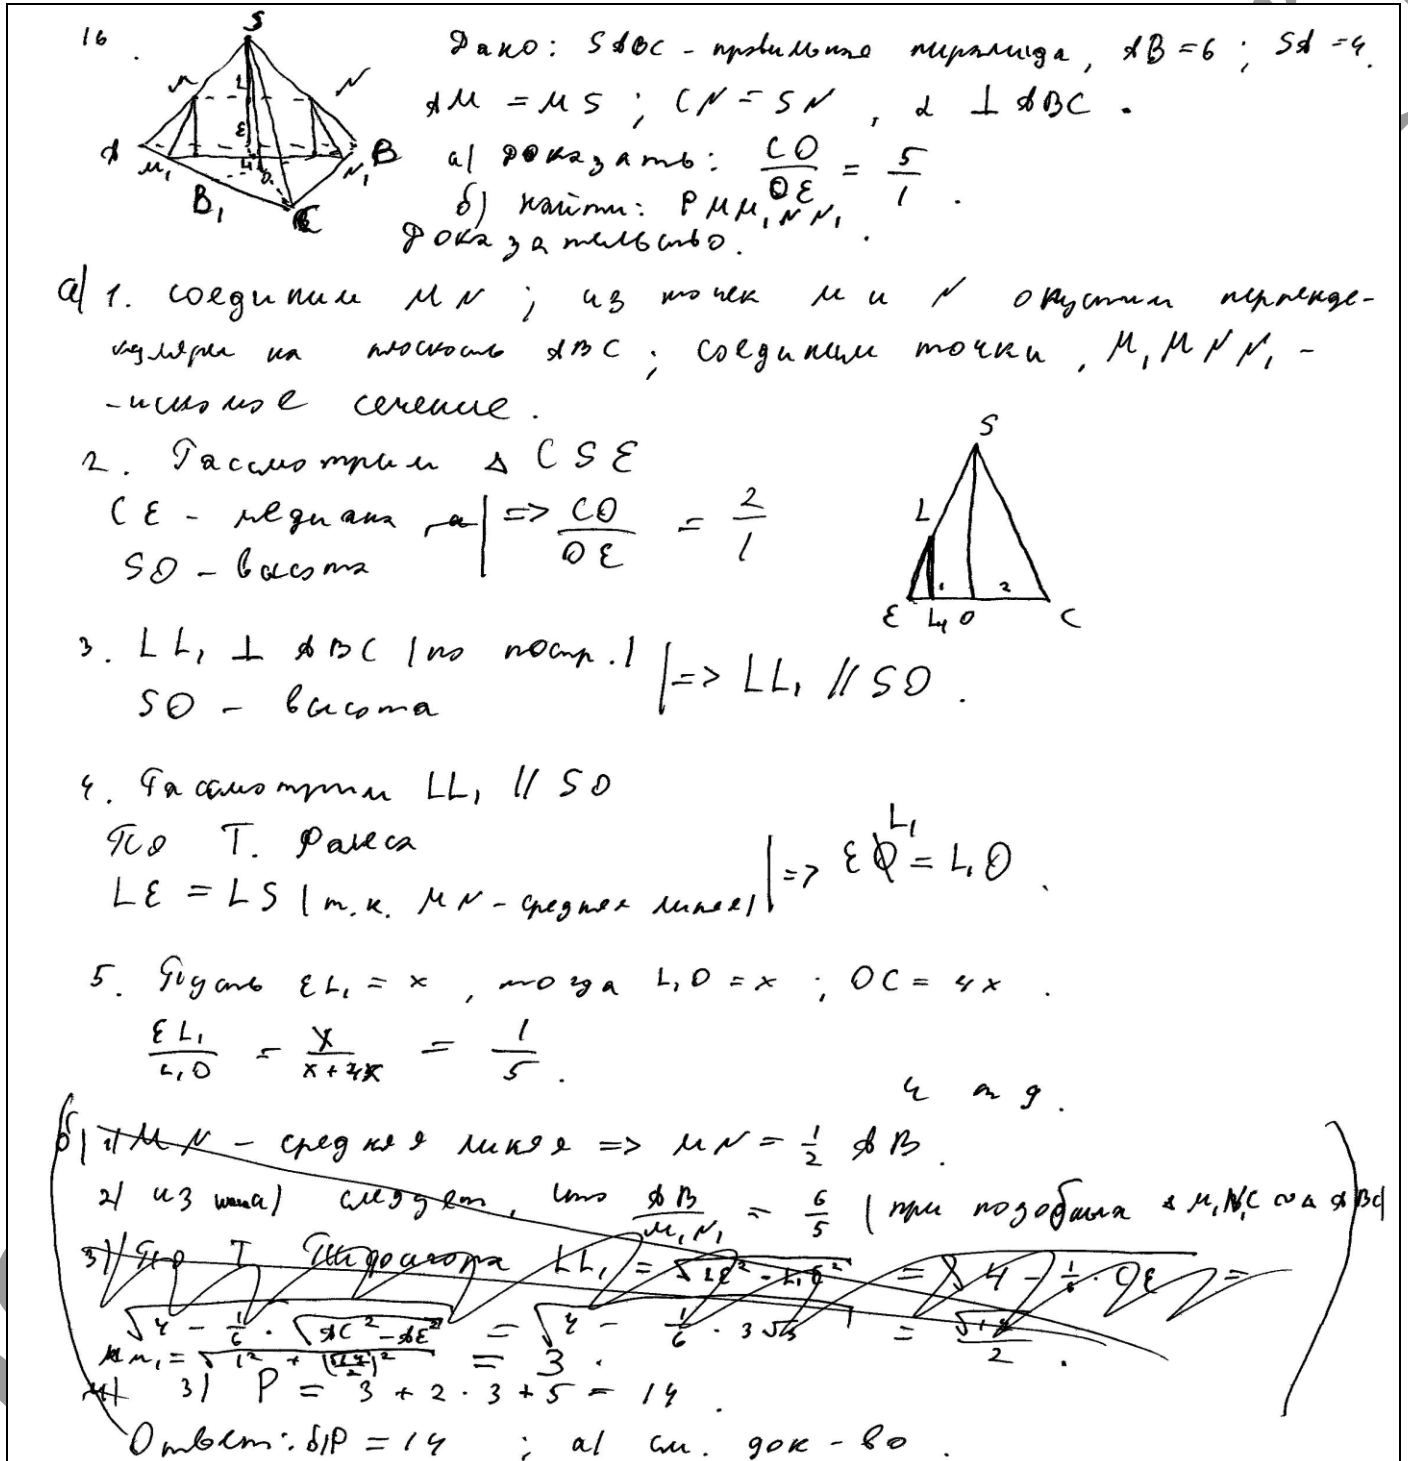 16.
Дано: SABC - правильная пирамида, AB = 6 ; SA = 4.
AM = MS ; CN = SN , α ⊥ ABC .
а) доказать: CO/OE = 5/1 .
б) найти: P MM₁NN₁ .
Доказательство.
S
M N
L
E
A B
M₁ L₁ O N₁
B₁ C
а) 1. соединим MN ; из точек M и N опустим перпенде-
куляры на плоскость ABC ; соединим точки , M₁MNN₁ -
- искомое сечение .
2. Рассмотрим Δ CSE
CE - медиана | => CO/OE = 2/1
SO - высота
S
L
1 2
E L₁ O C
3. LL₁ ⊥ ABC (по постр.) | => LL₁ // SO .
SO - высота
4. Рассмотрим LL₁ // SO
По Т. Фалеса
LE = LS (т.к. MN - средняя линия) | => EL₁ = L₁O .
5. Пусть EL₁ = x , тогда L₁O = x ; OC = 4x .
EL₁/L₁O = x/(x+4x) = 1/5 .
ч т д .
б) 1) MN - средняя линия => MN = 1/2 AB .
2) из а) следует, что AB/M₁N₁ = 6/5 (при подобии Δ M₁N₁C ∾ Δ ABC)
3) По Т Пифагора LL₁ = √(LE² - L₁E²) = √(4 - 1/6 · CE =
√(4 - 1/6 · √(AC² - AE²) = √(4 - 1/6 · 3√3 = /2 .
MM₁ = = 3 .
4) 3) P = 3 + 2 · 3 + 5 = 14 .
Ответ: б) P = 14 ; а) см. док - во .